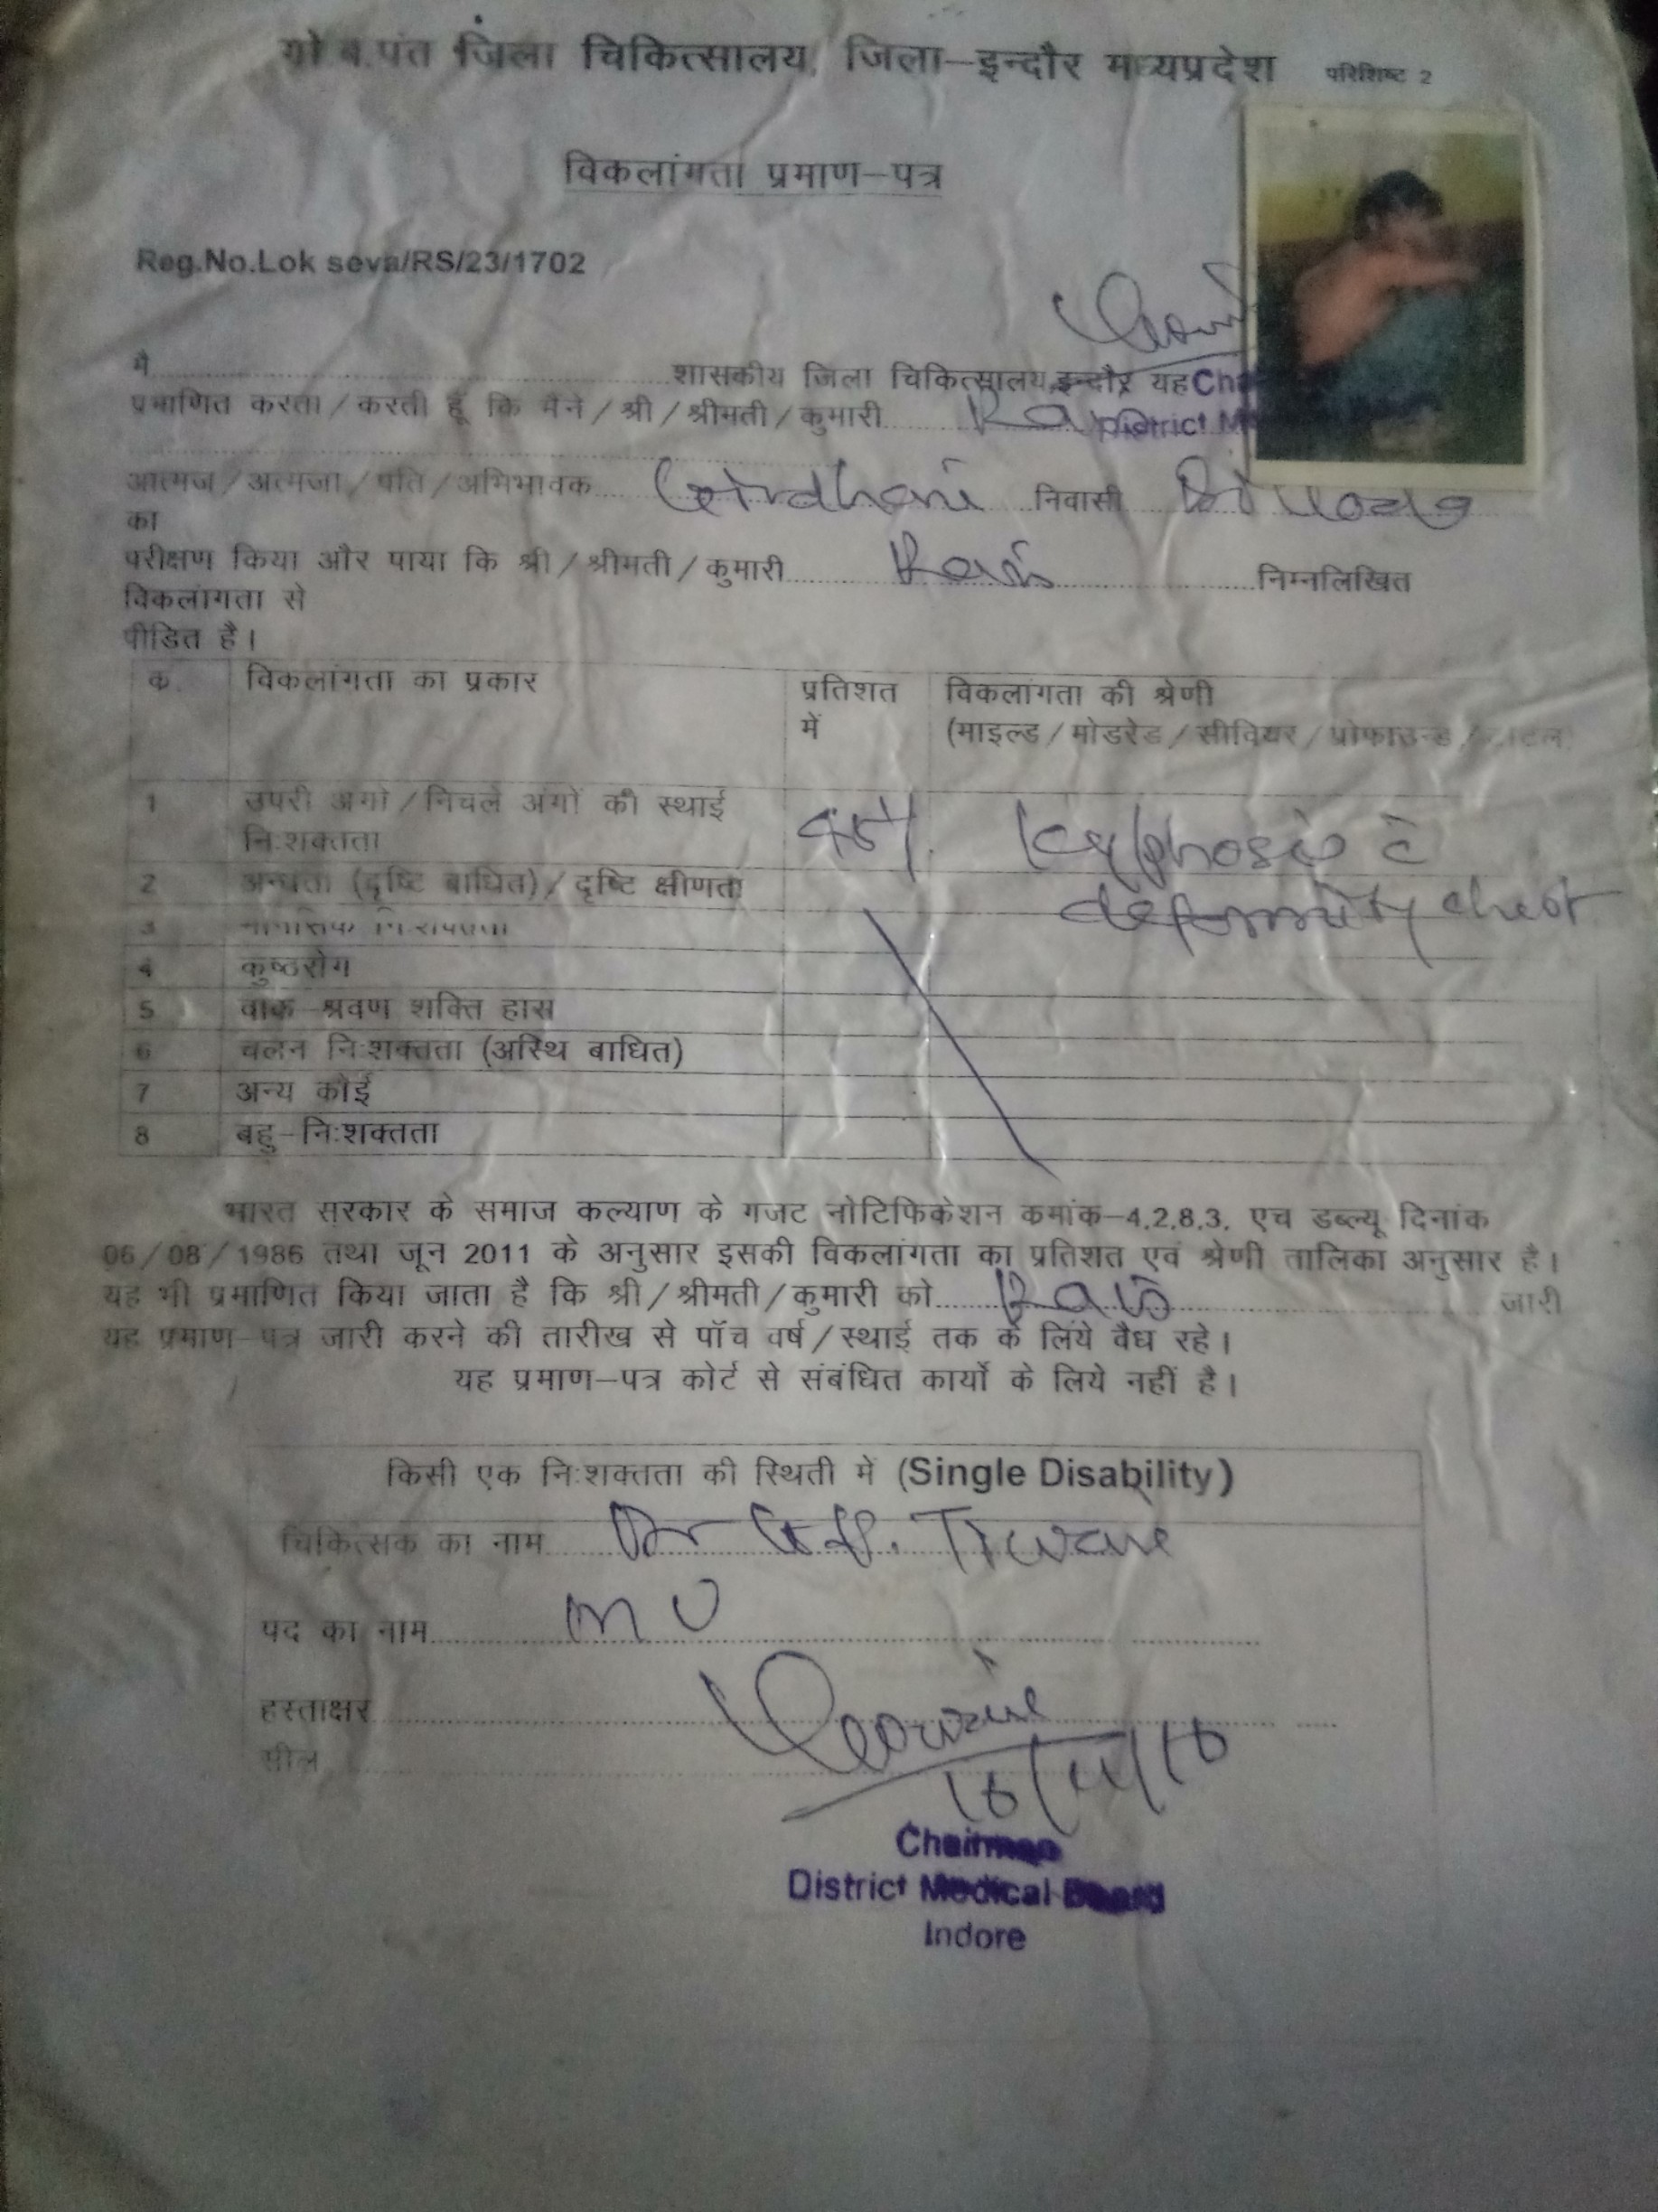 गो.ब.पंत जिला चिकित्सालय, जिला–इन्दौर मध्यप्रदेश परिशिष्ट 2
विकलांगता प्रमाण–पत्र
Reg.No.Lok seva/RS/23/1702
मै.......... शासकीय जिला चिकित्सालय,इन्दौर यह
प्रमाणित करता/करती हूँ कि मैने/श्री/श्रीमती/कुमारी..........
District
आत्मज/अत्मजा/पति/अभिभावक.... Girdhari निवासी
का
परीक्षण किया और पाया कि श्री/श्रीमती/कुमारी.......... Ravi ..........निम्नलिखित
विकलांगता से
पीडित है।
क. विकलांगता का प्रकार प्रतिशत में विकलागता की श्रेणी
(माइल्ड/मोडरेड/सीवियर/प्रोफाउन्ड/
1 उपरी अंगो/निचले अंगों की स्थाई निःशक्तता 45% Kyphosis c̄
deformity chest
2 अन्धता (दृष्टि बाधित)/दृष्टि क्षीणता
3
4 कुष्ठरोग
5 वाक–श्रवण शक्ति हास
6 चलन निःशक्तता (अस्थि बाधित)
7 अन्य कोई
8 बहु–निःशक्तता
भारत सरकार के समाज कल्याण के गजट नोटिफिकेशन कमांक–4,2,8,3, एच डब्ल्यू दिनांक
06/08/1986 तथा जून 2011 के अनुसार इसकी विकलांगता का प्रतिशत एवं श्रेणी तालिका अनुसार है।
यह भी प्रमाणित किया जाता है कि श्री/श्रीमती/कुमारी को.......... Ravi .......... जारी
यह प्रमाण–पत्र जारी करने की तारीख से पॉच वर्ष/स्थाई तक के लिये वैध रहे।
यह प्रमाण–पत्र कोर्ट से संबंधित कार्यो के लिये नहीं है।
किसी एक निःशक्तता की स्थिती में (Single Disability)
चिकित्सक का नाम.......... Dr Tiware
पद का नाम..........
हस्ताक्षर..........
सील..........
Chairman
District Medical Board
Indore